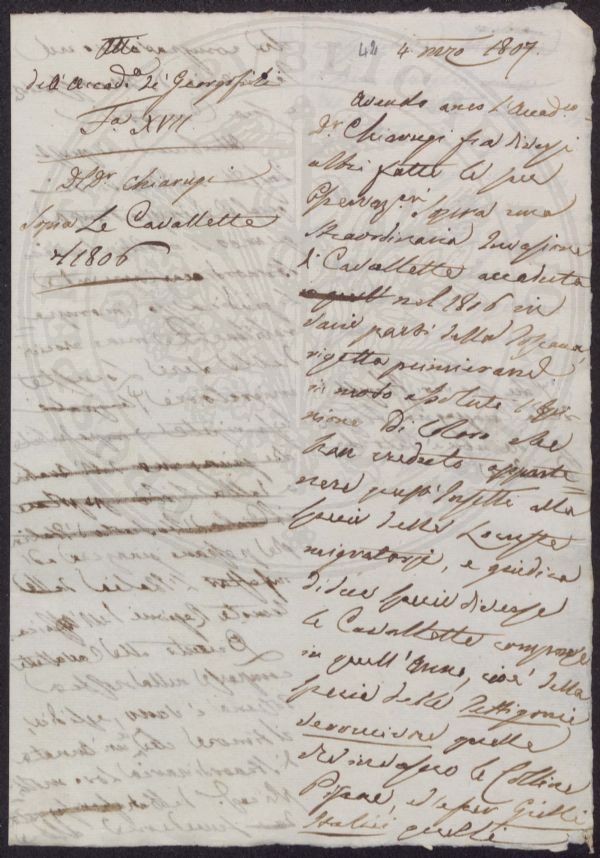 Atto
dell'Accad.a de' Georgofili
To. XVII
Del Dr. Chiarugi
Sopra Le Cavallette
d 1806
42 4 mzo 1807.
Avendo anco l'Accad.co
Dr Chiarugi fra diversi
altri fatte le sue
Osservaz.ni sopra una
straordinaria Invasione
di Cavallette accaduta
nel 1806 in
varie parti della Toscana,
rigetta primieram.
in modo assoluto l'Opi-
nione di Coloro che
han creduto apparte-
nere questi Insetti alla
specie delle Locuste
migratorie, e giudica
di due specie diverse
le Cavallette comparse
in quell'Anno, cioè della
specie delle Tettigonie
verrucivore quelle
che invasero le Colline
Pisane, ed esser Grilli
Italici quelli